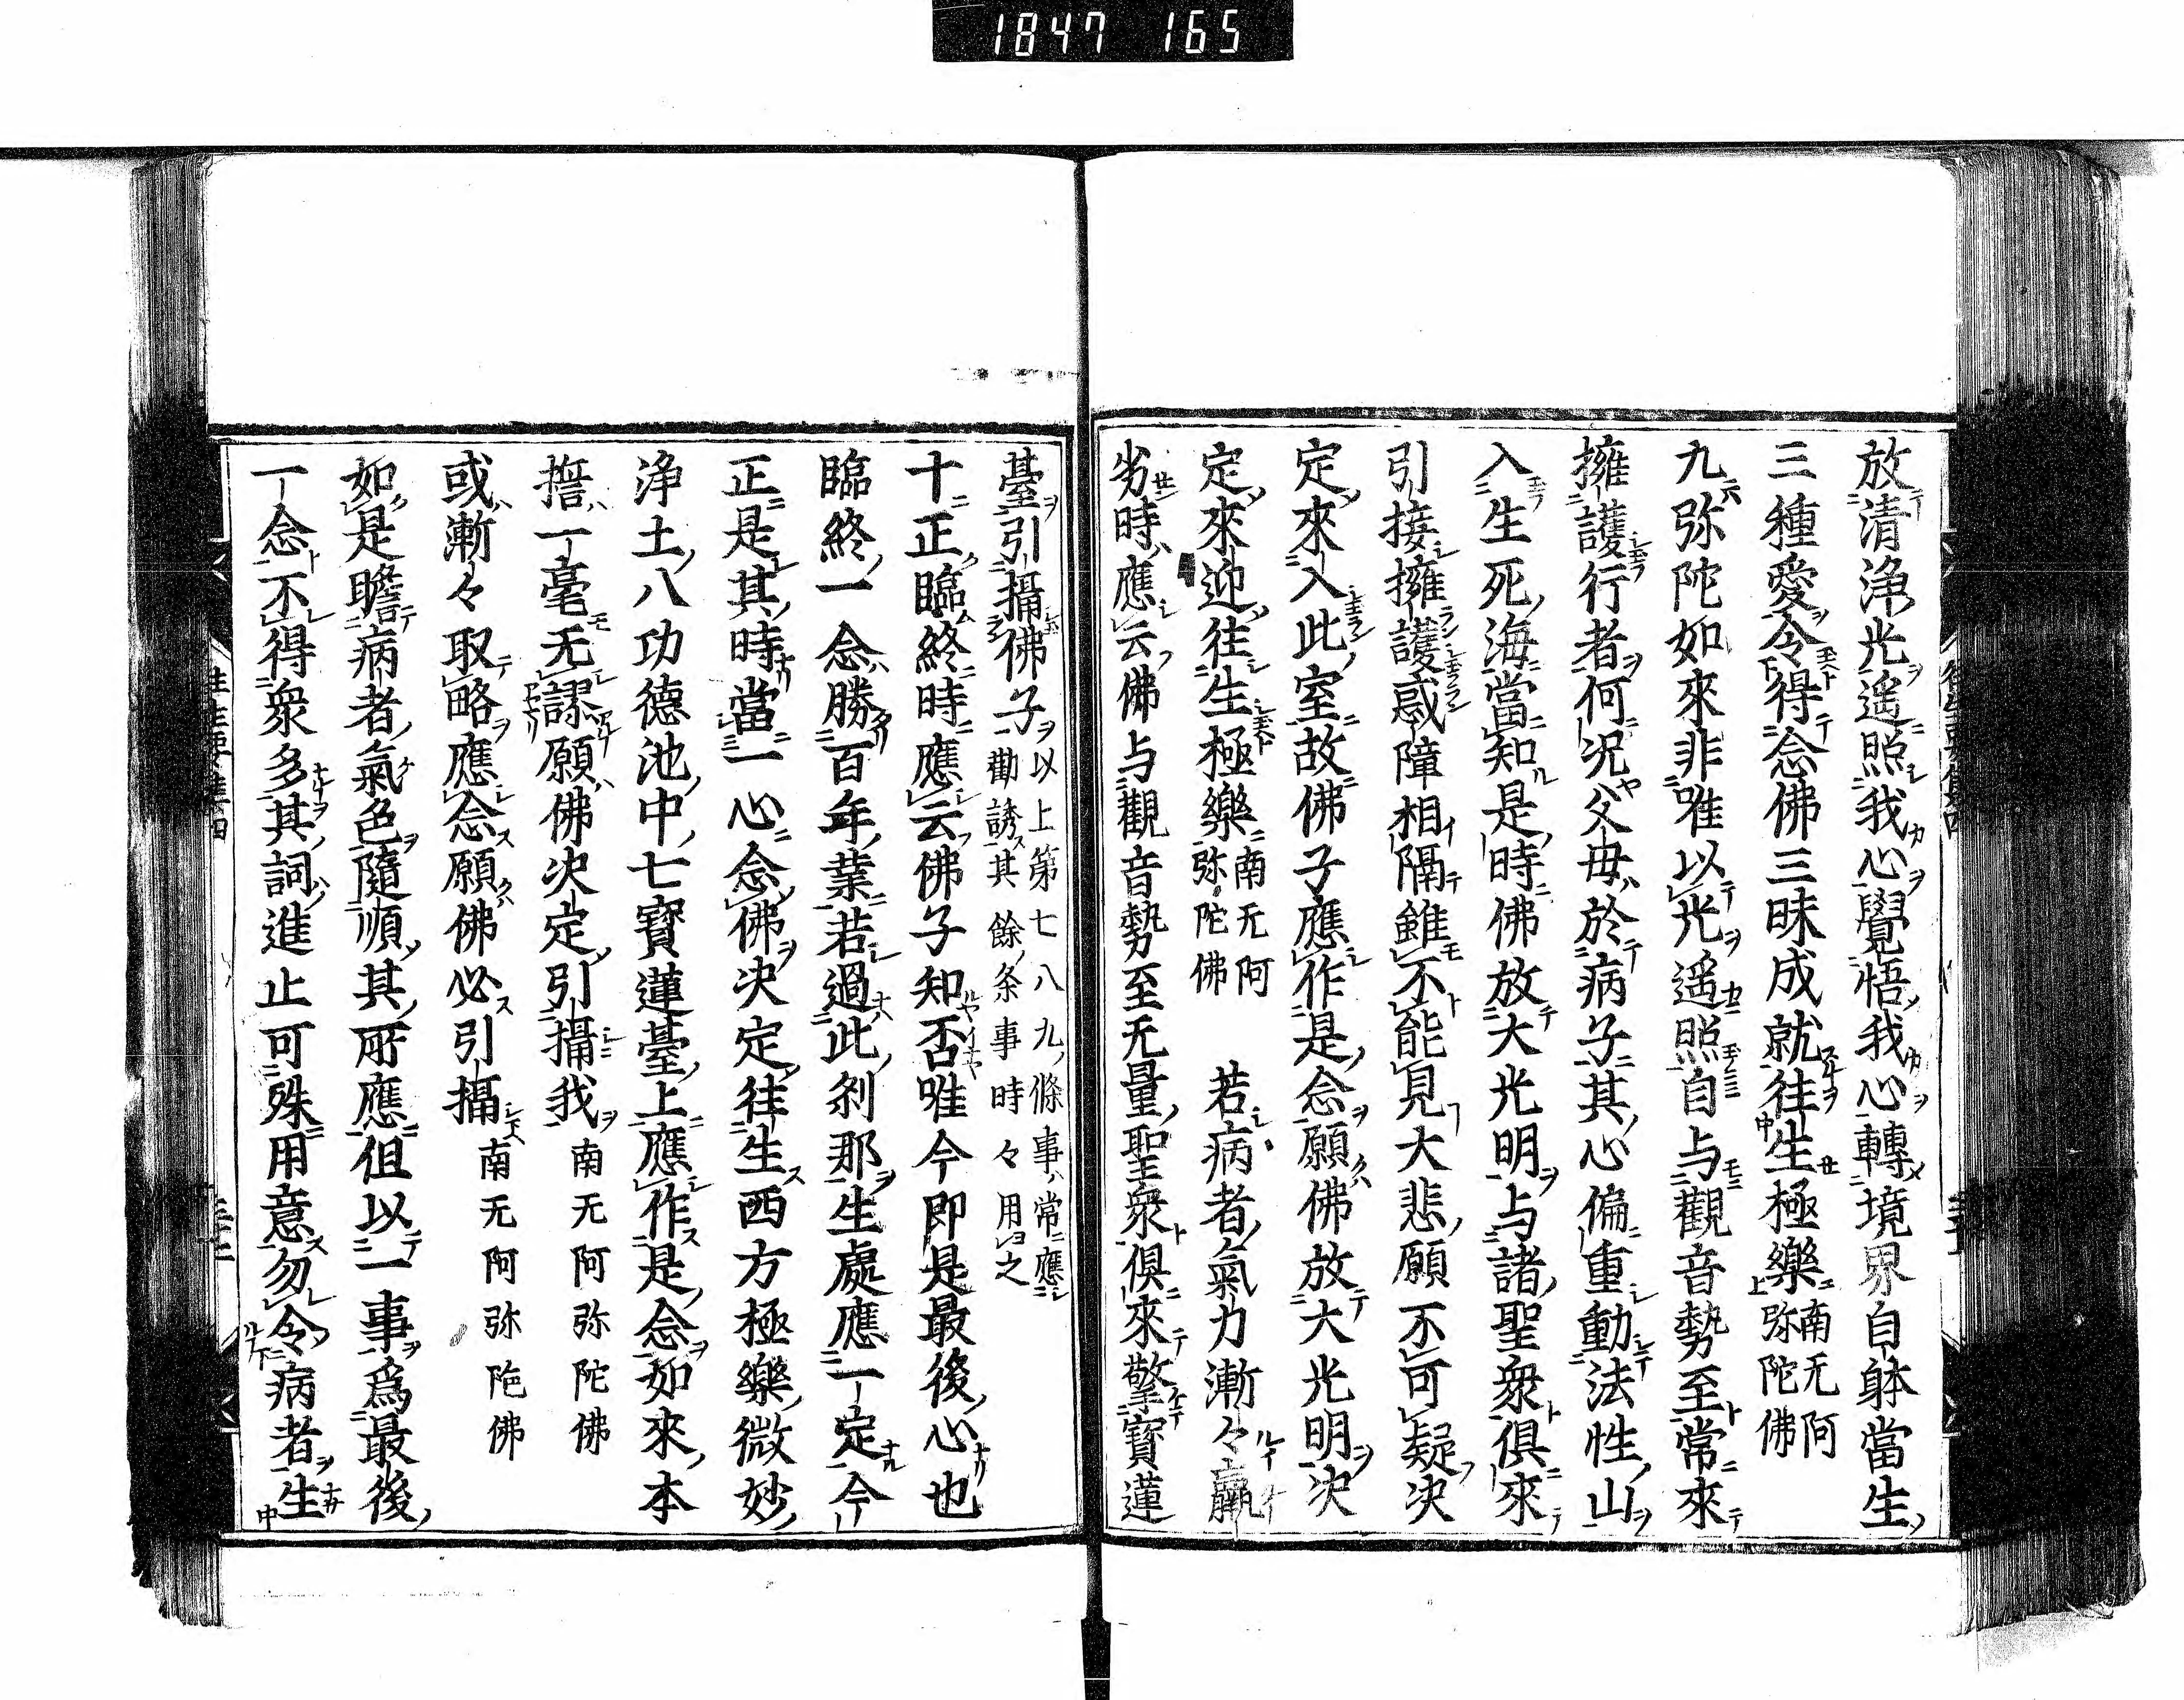 1847 165
放清浄光遥照我心覺悟我心轉境界自躰當生
三種愛令得念佛三昧成就往生極樂南无阿弥陀佛
九弥陀如來非唯以光遥照自与觀音勢至常來
擁護行者何况父母於病子其心偏重動法性山
入生死海當知是時佛放大光明与諸聖衆俱來
引接擁護惑障相隔雖不能見大悲願不可疑决
定來入此室故佛子應作是念願佛放大光明决
定來迎往生極樂南无阿弥陀佛 若病者氣力漸々羸
劣時應云佛与觀音勢至无量聖衆俱來擎寶蓮
臺引攝佛子以上第七八九條事常應勸誘其餘条事時々用之
十正臨終時應云佛子知否唯今即是最後心也
臨終一念勝百年業若過此刹那生處應一定今
正是其時當一心念佛决定往生西方極樂微妙
浄土八功德池中七寶蓮臺上應作是念如來本
誓一毫无謬願佛决定引攝我南无阿弥陀佛
或漸々取略應念願佛必引攝南无阿弥陀佛
如是瞻病者氣色隨順其所應但以一事爲最後
一念不得衆多其詞進止可殊用意勿令病者生